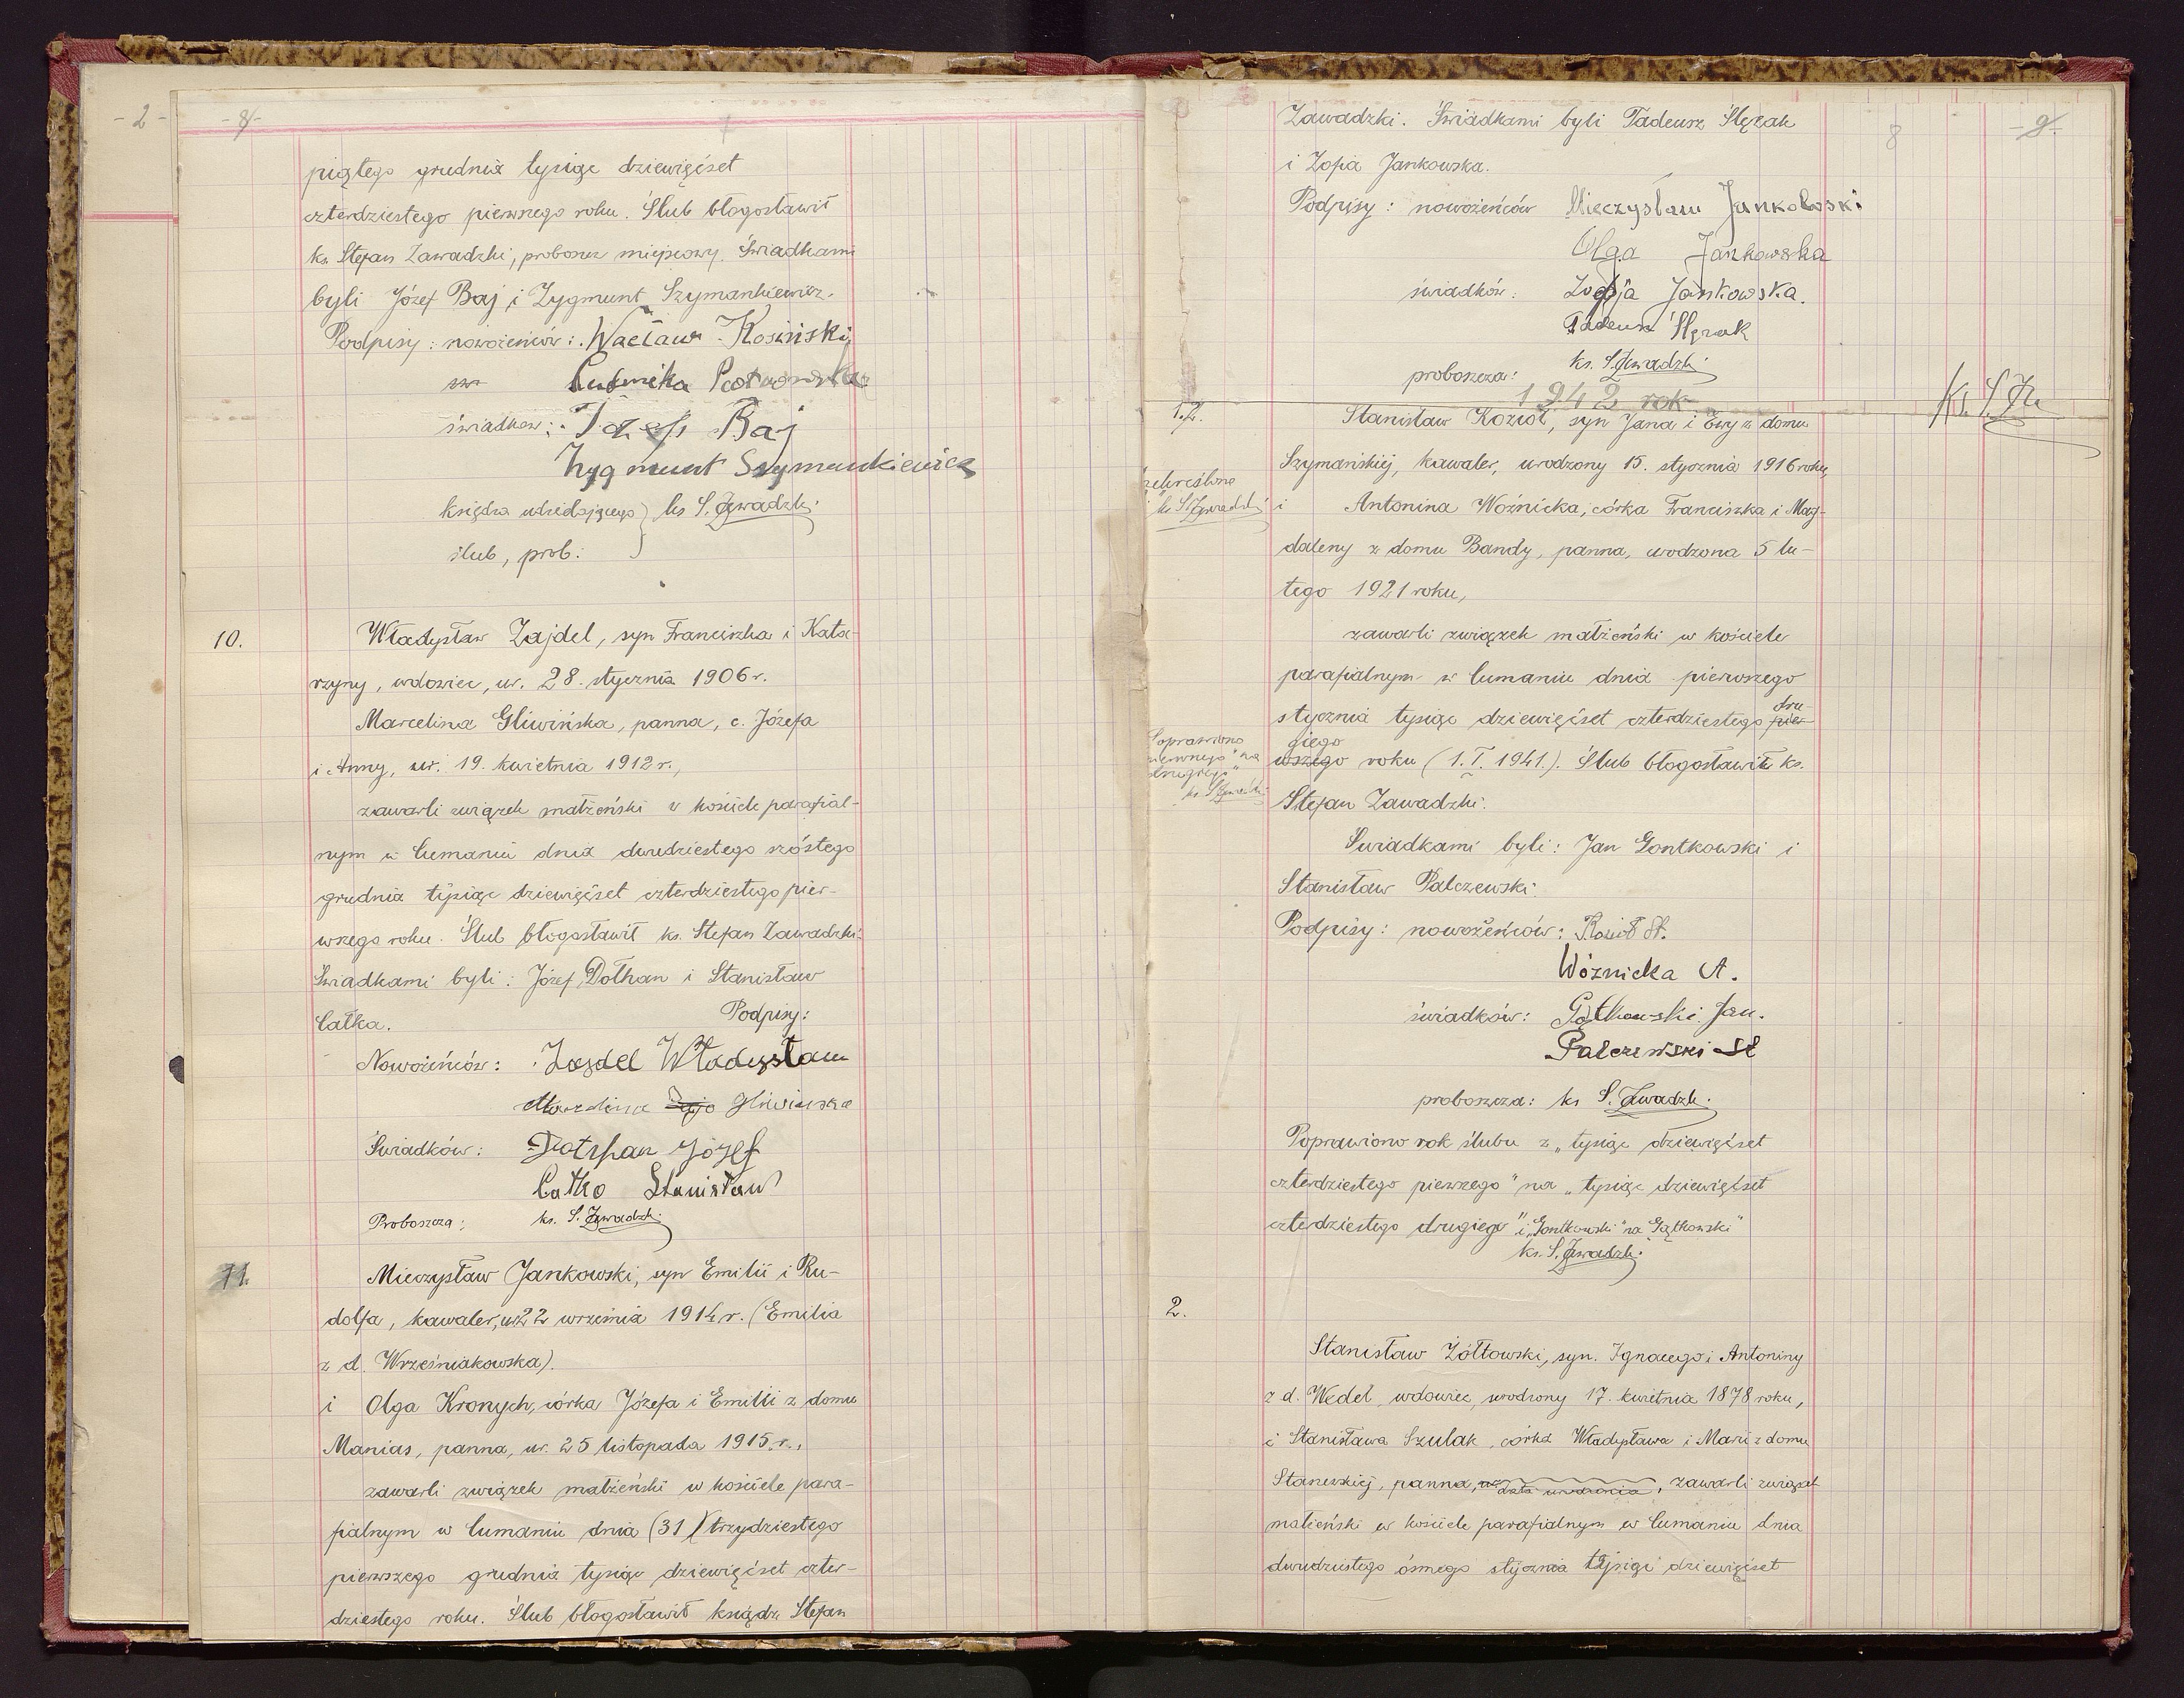 - 2 -
- 8 -
piątego grudnia tysiąc dziewięćset
czterdziestego pierwszego roku. Ślub błogosławił
ks. Stefan Zawadzki, proboszcz miejscowy. Świadkami
byli Józef Baj i Zygmunt Szymankiewicz.
Podpisy: nowożeńców: Wacław Kosiński
św
świadków: Józef Baj
Zygmunt Szymankiewicz
księdza udzielającego } ks S. Zawadzki
ślub, prob.
10.
Władysław Zajdel, syn Franciszka i Kata-
rzyny, wdowiec, ur. 28. stycznia 1906 r.
Marcelina Gliwińska, panna, c. Józefa
i Anny, ur. 19. kwietnia 1912 r.,
zawarli związek małżeński w kościele parafial-
nym w Łumaniu dnia dwudziestego szóstego
grudnia tysiąc dziewięćset czterdziestego pier-
wszego roku. Ślub błogosławił ks. Stefan Zawadzki.
Świadkami byli: Józef Dothan i Stanisław
Całka. Podpisy:
Nowożeńców: Zajdel Władysław
Marcelina Gliwińska
Świadków: Józef
Całko Stanisław
Proboszcza: ks. S. Zawadzki
11.
Mieczysław Jankowski, syn Emilii i Ru-
dolfa, kawaler, ur. 22 września 1914 r. (Emilia
z d. Wrześniakowska).
i Olga Kronych, córka Józefa i Emilii z domu
Manias, panna, ur. 25 listopada 1915 r.,
zawarli związek małżeński w kościele para-
fialnym w Łumaniu dnia (31) trzydziestego
pierwszego grudnia tysiąc dziewięćset czter-
dziestego roku. Ślub błogosławił ksiądz Stefan
8
- 9 -
Zawadzki. Świadkami byli Tadeusz Ślęzak
i Zofia Jankowska.
Podpisy: nowożeńców Mieczysław Jankowski
Olga Jankowska
świadków: Zofja Jankowska.
Tadeusz Ślęzak
proboszcza: ks. S. Zawadzki
1942 rok
Stanisław Kozioł, syn Jana i Ewy z domu
Szymańskiej, kawaler, urodzony 15. stycznia 1916 roku,
ks S. Zawadzki
i Antonina Woźnicka, córka Franciszka i Mag-
daleny z domu Bandy, panna, urodzona 5 lu-
tego 1921 roku,
zawarli związek małżeński w kościele
parafialnym w Łumaniu dnia pierwszego
stycznia tysiąc dziewięćset czterdziestego pier- dru-
wszego giego roku (1. I. 1941.). Ślub błogosławił ks.
Poprawiono
pierwszego" na
"drugiego"
ks. S. Zawadzki
Stefan Zawadzki.
Świadkami byli: Jan Gontkowski i
Stanisław Palczewski.
Podpisy: nowożeńców: Kozioł St.
Wóznicka A.
świadków: Gątkowski Jan.
Palczewski St
proboszcza: ks S. Zawadzki
Poprawiono rok ślubu z „tysiąc dziewięćset
czterdziestego pierwszego" na „tysiąc dziewięćset
czterdziestego drugiego" i „Gontkowski" na „Gątkowski"
ks. S. Zawadzki
2.
Stanisław Żółtowski, syn. Ignacego i Antoniny
z d. Wedel, wdowiec, urodzony 17. kwietnia 1878 roku,
i Stanisława Szulak, córka Władysława i Marii z domu
Staniewskiej, panna, data urodzenia, zawarli związek
małżeński w kościele parafialnym w Łumaniu dnia
dwudziestego ósmego stycznia tysiąc dziewięćset